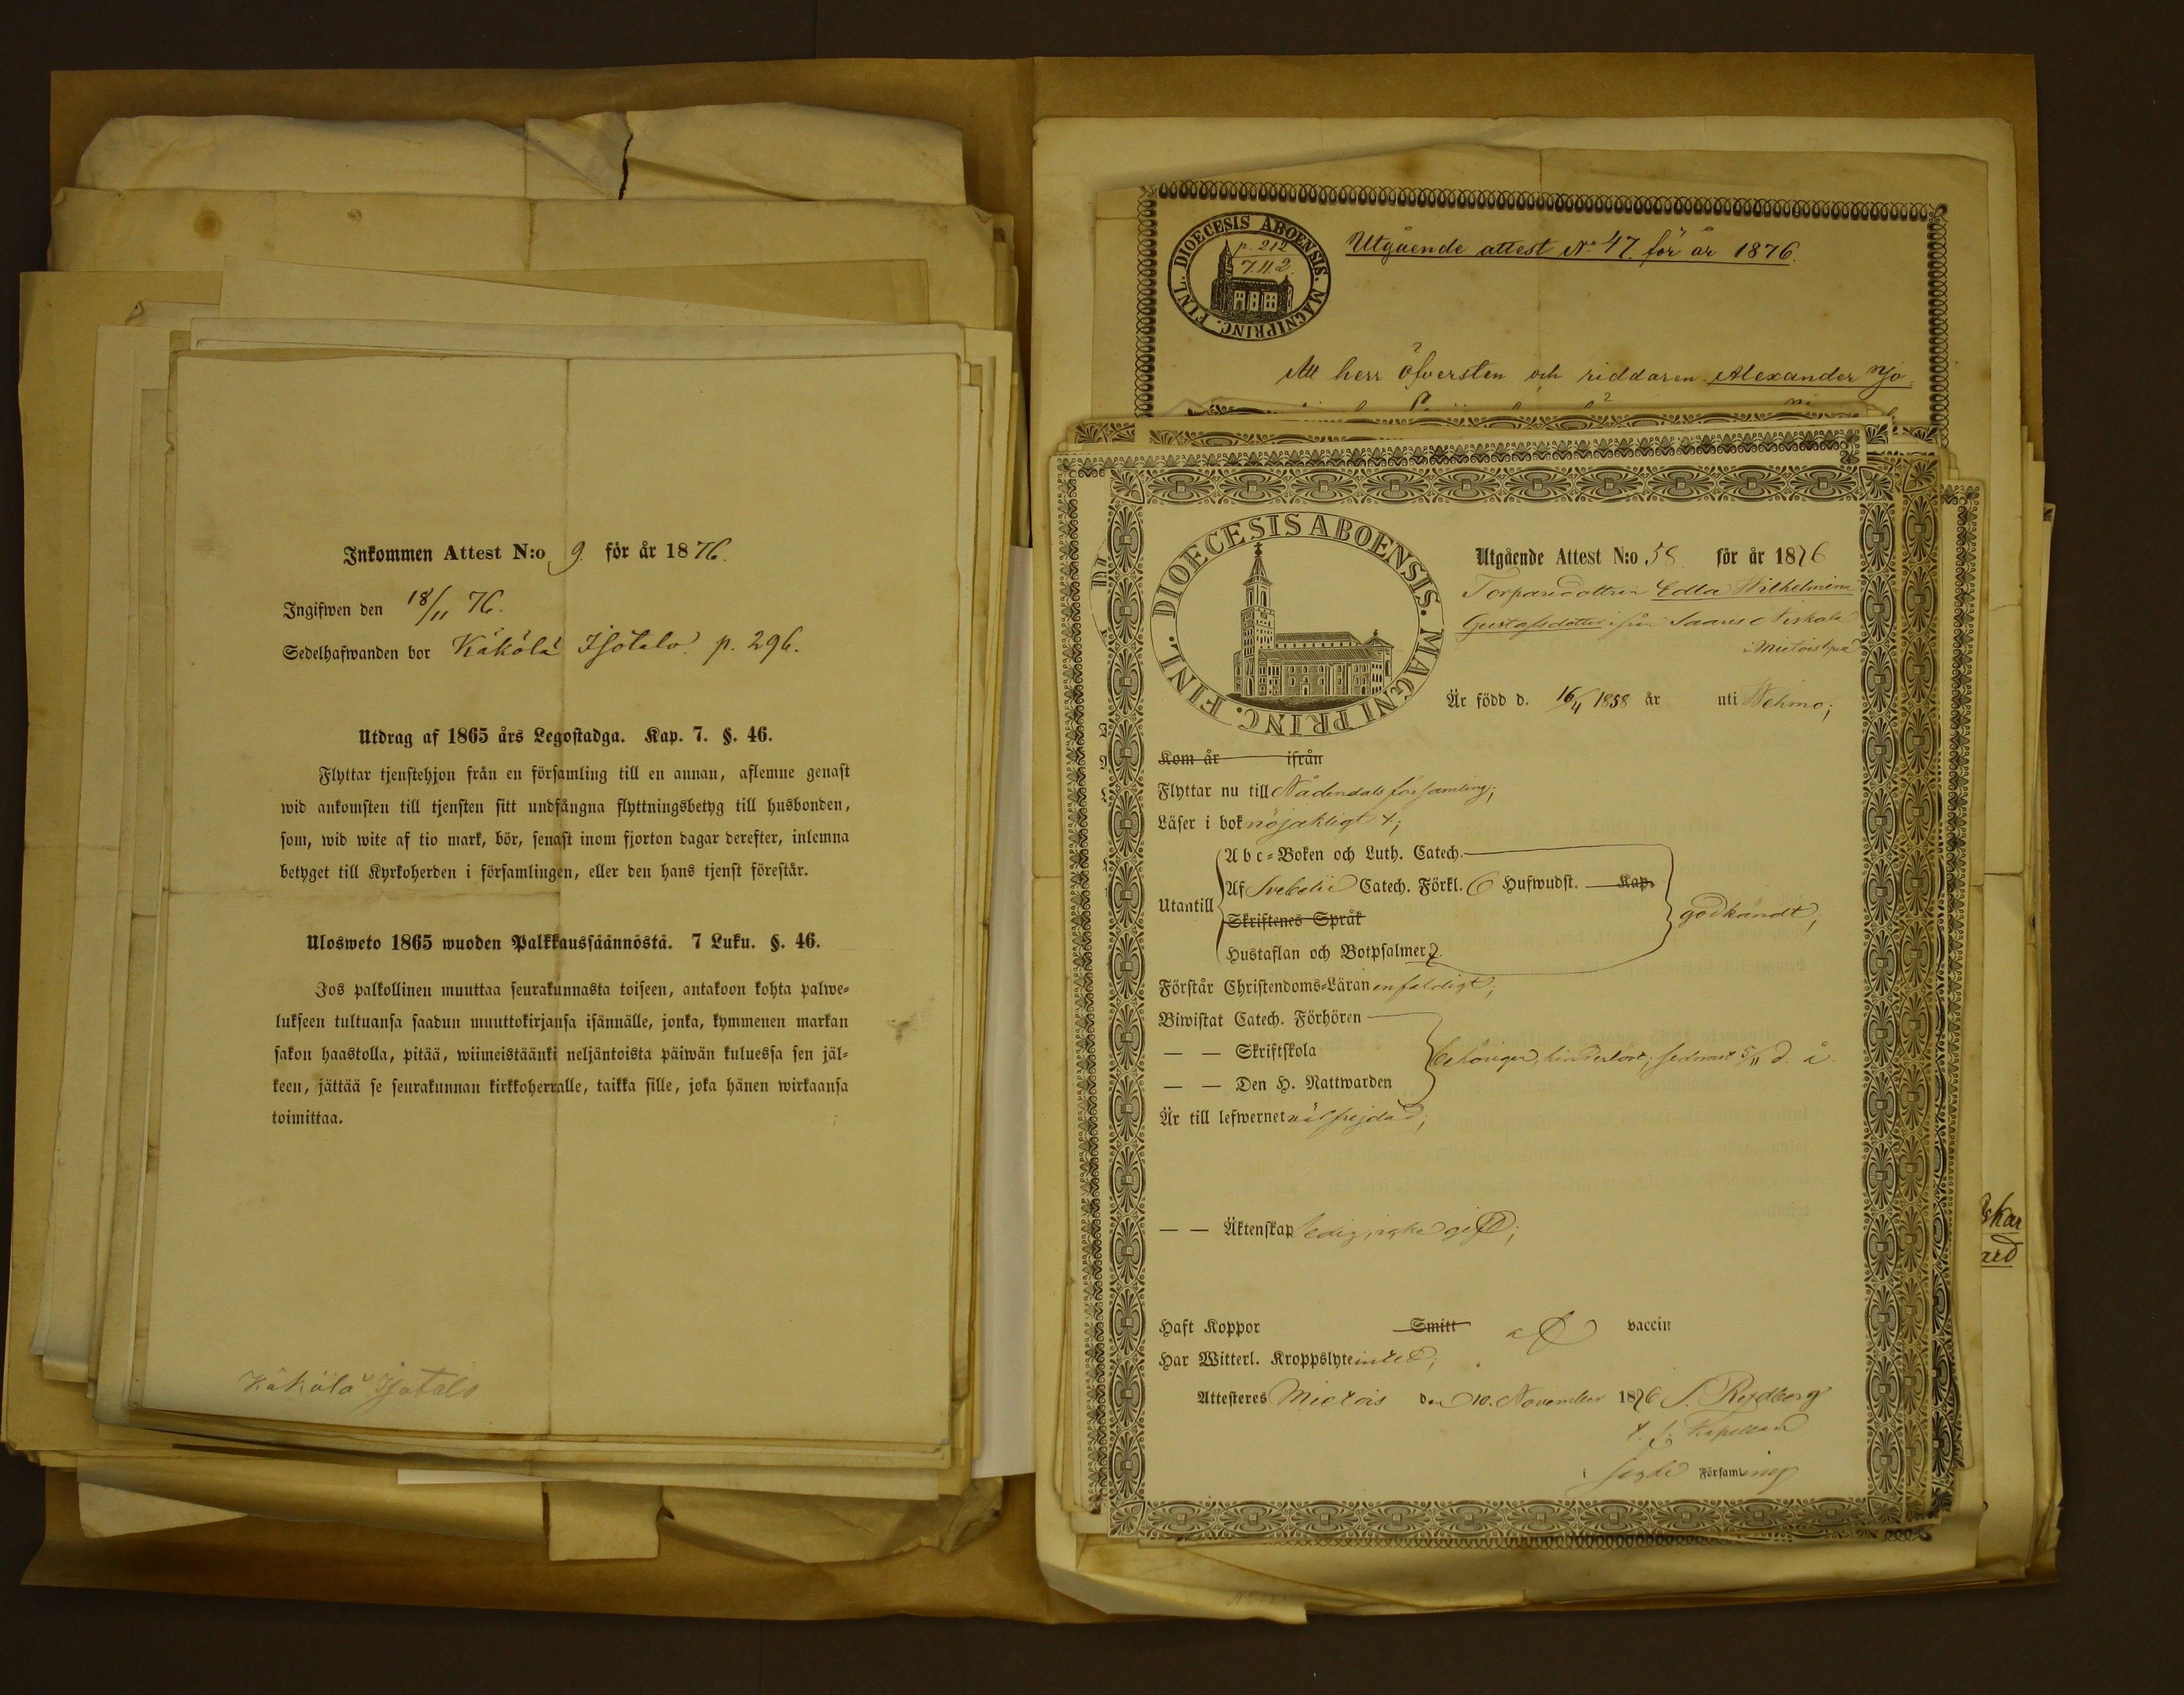 Inkommen Attest N:o 9. för år 1876.
Ingifwen den 18/11 76.
Sedelhafwanden bor Käkölä Isotalo p. 296.
Utdrag af 1865 års Legostadga. Kap. 7. §. 46.
Flyttar tjenstehjon från en församling till en annan, aflemne genast
wid ankomsten till tjensten sitt undfångna flyttningsbetyg till husbonden,
som, wid wite af tio mark, bör, senast inom fjorton dagar derefter, inlemna
betyget till Kyrkoherden i församlingen, eller den hans tjenst förestår.
Ulosweto 1865 wuoden Palkkaussäännöstä. 7 Luku. §. 46.
Jos palkollinen muuttaa seurakunnasta toiseen, antakoon kohta palwe-
lukseen tultuansa saadun muuttokirjansa isännälle, jonka, kymmenen markan
sakon haastolla, pitää, wiimeistäänki neljäntoista päiwän kuluessa sen jäl-
keen, jättää se seurakunnan kirkkoherralle, taikka sille, joka hänen wirkaansa
toimittaa.
Käkölä Isotalo
DIOECESIS ABOENSIS. MAGNI PRINC. FINL.
p. 212
7.11.2.
Utgående attest No 47. för år 1876.
Att herr öfversten och riddaren Alexander
DIOECESIS ABOENSIS. MAGNI PRINC. FINL.
Utgående Attest N:o 58 för år 1876
Torparedottren Edla Wilhelmina
Gustafsdotter ifrån Saaris Niskala
i Mietois
Är född d. 16/4 1858 år uti Wehmo;
Kom år ifrån
Flyttar nu till Nådendals församling;
Läser i bok nöjaktigt +;
Utantill
Abc-Boken och Luth. Catech.
Af Svebelii Catech. Förkl. 6 Hufwudst. Kap.
Skriftenes Språk
Hustaflan och Botpsalmer 2.
godkändt;
Förstår Christendoms-Läran enfaldigt;
Biwistat Catech. Förhören
— — Skriftskola
— — Den H. Nattwarden
behörigen, hinderlöst; sednast 5/11 d. å.
Är till lefwernet wälfrejdad;
— — Äktenskap ledig, icke gift;
Haft Koppor Smitt af vaccin
Har Witterl. Kroppslyte intet;
Attesteres Mietois den 10. November 1876 S. Rydberg
Kapellan
i sagde Församling